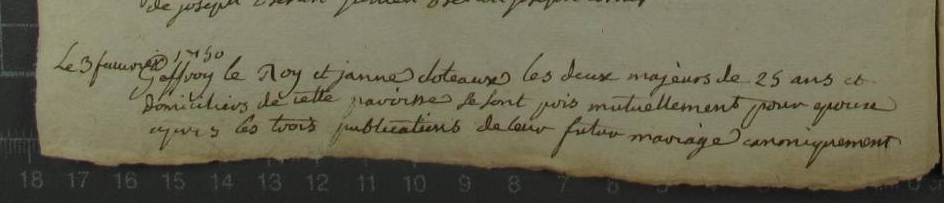 de joseph
Le 3 fevrier 1750
Geffroy le Roy et janne cloteaux les deux majeurs de 25 ans et
domiciliers de cette paroisse se sont pris mutuellement pour epoux
apres les trois publications de leur futur mariage canoniquement
18 17 16 15 14 13 12 11 10 9 8 7 6 5 4 3